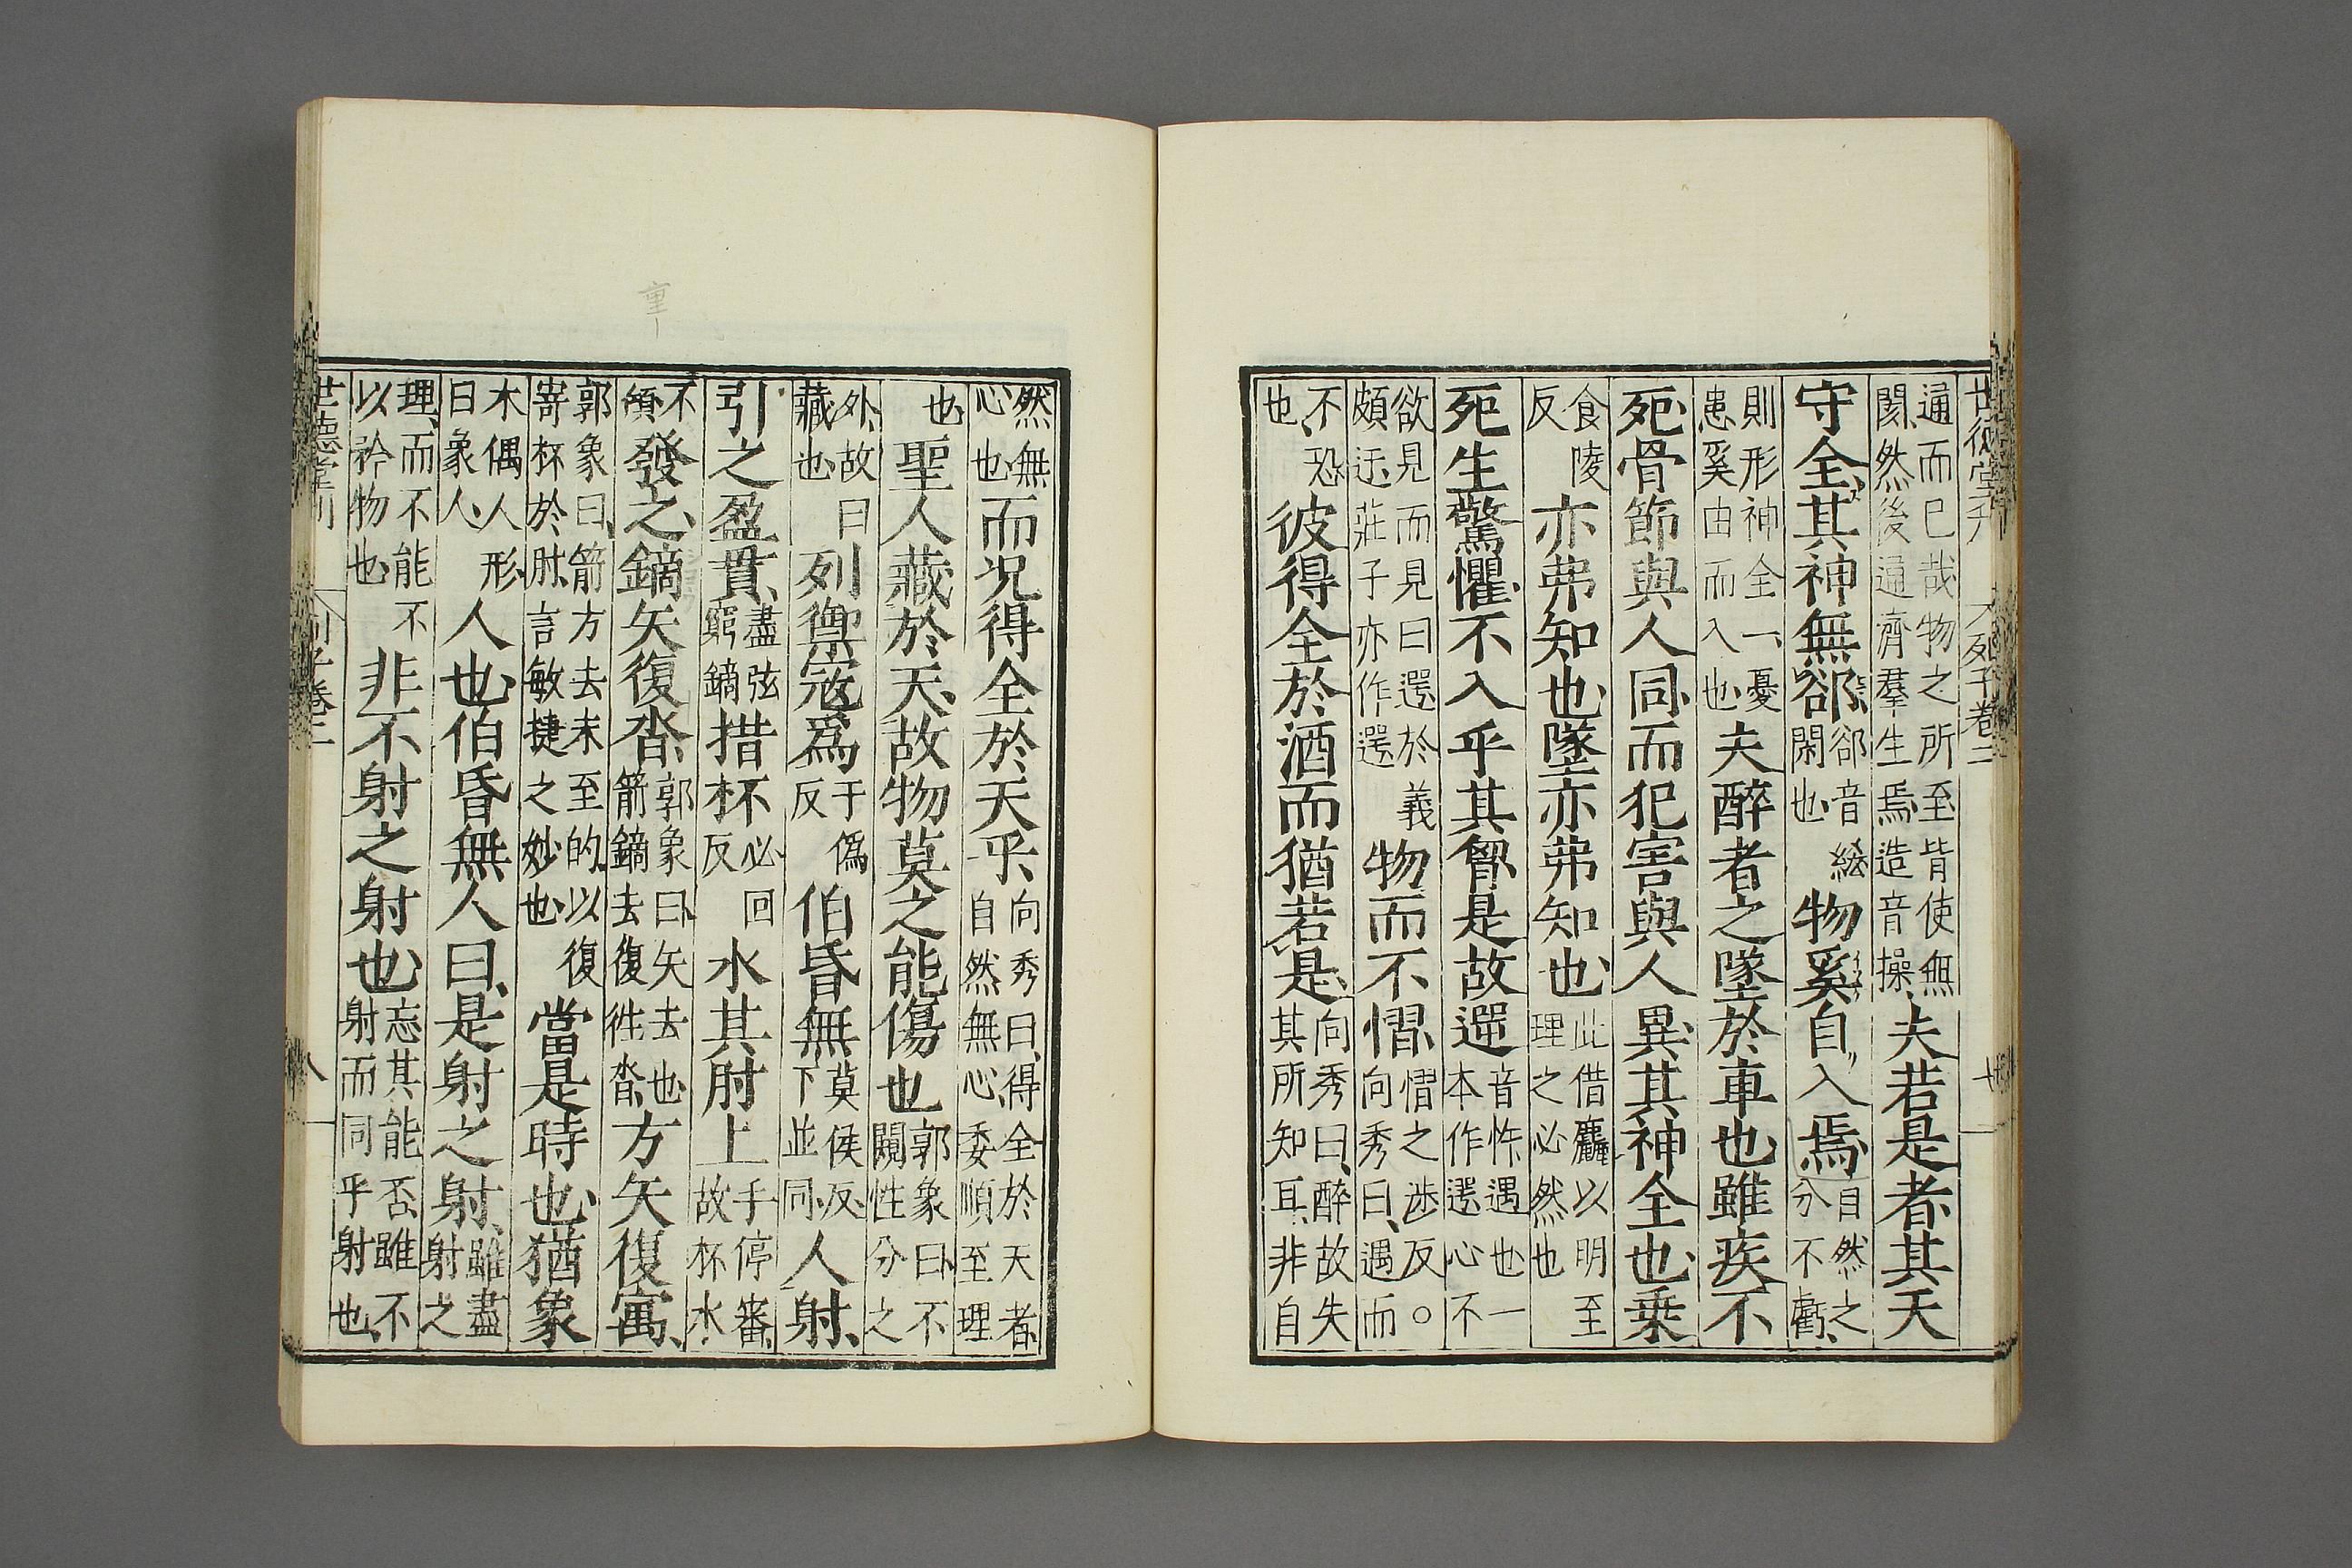 世德堂刊 列子卷二 七
通而已哉物之所至皆使無
閡然後通濟羣生焉造音操
夫若是者其天
守全其神無郤
郤音綌
閑也
物奚自入焉
自然之
分不虧
則形神全一憂
患奚由而入也
夫醉者之墜於車也雖疾不
死骨節與人同而犯害與人異其神全也乗
食陵
反
亦弗知也墜亦弗知也
此借麤以明至
理之必然也
死生驚懼不入乎其胷是故遻
音忤遇也一
本作遻心不
欲見而見曰遻於義
頗迂莊子亦作遻
物而不慴
慴之涉反○
向秀曰遇而
不恐
也
彼得全於酒而猶若是
向秀曰醉故失
其所知耳非自
然無
心也
而况得全於天乎
向秀曰得全於天者
自然無心委順至理
也
聖人藏於天故物莫之能傷也
郭象曰不
闚性分之
外故
藏也
曰
列禦寇爲
于僞
反
伯昏無
莫侯反
下並同
人射
引之盈貫
盡弦
窮鏑
措杯
必回
反
水其肘上
手停審
故杯水
不
傾
發之鏑矢復沓
郭象曰矢去也
箭鏑去復徃沓
方矢復寓
郭象曰箭方去未至的以復
寄杯於肘言敏捷之妙也
當是時也猶象
木偶人人形
曰象人
人也伯昏無人曰是射之射
雖盡
射之
理而不能不
以衿物也
非不射之射也
忘其能否雖不
射而同乎射也
世德堂刊 列子卷二 八